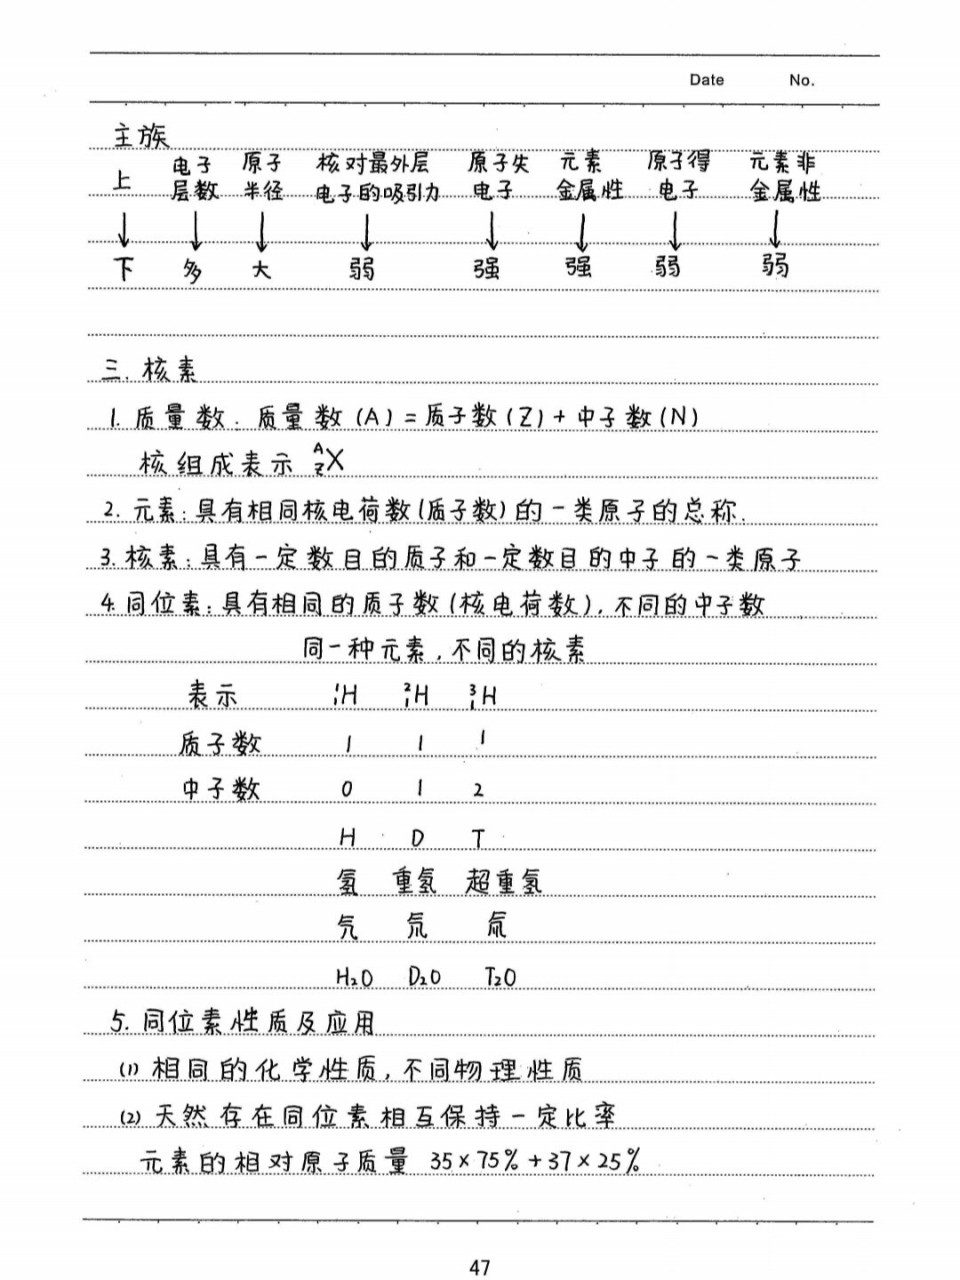 Date No.
主族
上 电子层数 原子半径 核对最外层电子的吸引力 原子失电子 元素金属性 原子得电子 元素非金属性
↓ ↓ ↓ ↓ ↓ ↓ ↓ ↓
下 多 大 弱 强 强 弱 弱
三.核素
1.质量数.质量数(A)=质子数(Z)+中子数(N)
核组成表示 ᴬ_ZX
2.元素:具有相同核电荷数(质子数)的一类原子的总称.
3.核素:具有一定数目的质子和一定数目的中子的一类原子
4.同位素:具有相同的质子数(核电荷数),不同的中子数
同一种元素,不同的核素
表示 ¹₁H ²₁H ³₁H
质子数 1 1 1
中子数 0 1 2
H D T
氢 重氢 超重氢
氕 氘 氚
H₂O D₂O T₂O
5.同位素性质及应用
(1)相同的化学性质,不同物理性质
(2)天然存在同位素相互保持一定比率
元素的相对原子质量 35×75%+37×25%
47